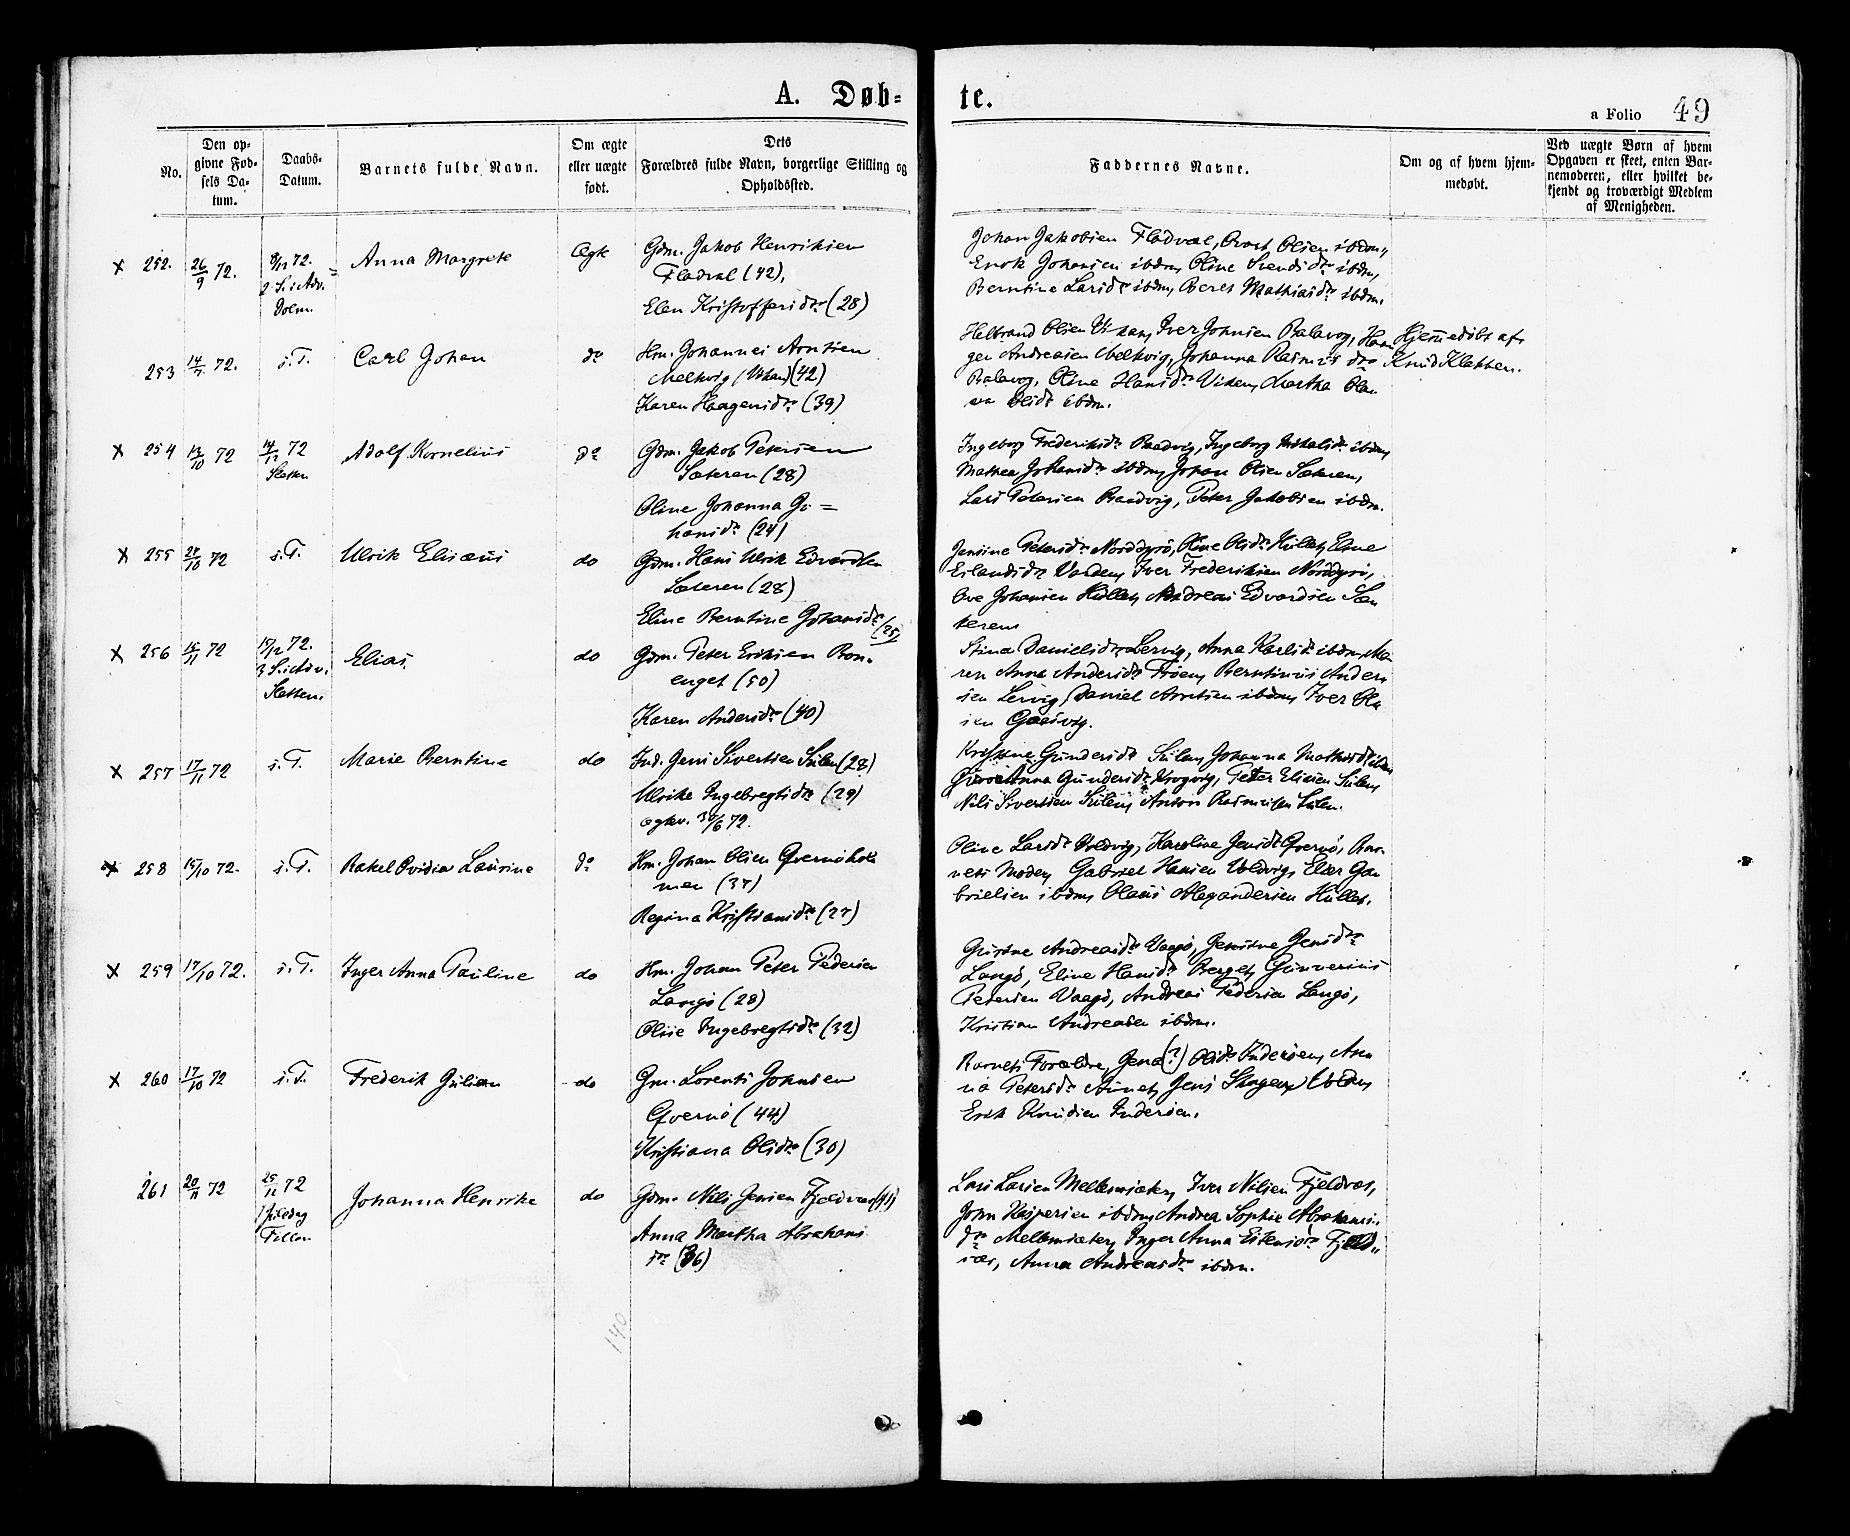 A. Døb-te.
a Folio 49
No.
Den op-
givne Fød-
sels Da-
tum.
Daabs-
Datum.
Barnets fulde Navn.
Om ægte
eller uægte
født.
Dets
Forældres fulde Navn, borgerlige Stilling og
Opholdssted.
Faddernes Navne.
Om og af hvem hjem-
medøbt.
Ved uægte Børn af hvem
Opgaven er skeet, enten Bar-
nemoderen, eller hvilket be-
kjendt og troværdigt Medlem
af Menigheden.
x 252. 26/9 72. 8/12 72. Anna Margrete Ægte Gdm. Jakob Henriksen
2 S. i Adv. Fladval (42),
Dolm. Elen Kristoffersdtr (28)
Johan Jakobsen Fladval, Olsen ibdm,
Enok Johansen ibdm, Oline Svendsdtr ibdm,
Berntine Larsdtr ibdm, Beret Mathiasdtr ibdm.
253 72. s.T. Carl Johan do Hm. Johannes Arntsen
Melkvig (42)
Karen Haagensdtr (39)
Olsen Iver Johnsen Balavog, Haa- Hjemmedøbt af
gen Andreasen Melkvig, Johanna dtr Knud Klakken.
Balavog, Oline Hansdtr Martha Ola-
va Olsdtr ibdm.
x 254 13/10 72 14/12 72 Adolf Kornelius do Gdm. Jakob Petersen
Sletten Sæteren (28)
Oline Johanna Jo=
hansdtr (24)
Ingeborg Frederiksdtr Ingeborg ibdm,
Mathea Johansdtr ibdm, Johan Olsen Sæteren,
Lars Petersen Peter Jakobsen ibdm.
x 255 27/10 72 s.T. Ulrik Elisæus do Gdm. Hans Ulrik Edvardsen
Sæteren (28)
Eline Berntine Johansdtr (25)
Jensine Petersdtr Norddyrø, Oline Olsdtr Hullet, Eline
Erlandsdtr Valden, Iver Frederiksen Norddyrø,
Ove Johansen Hullet, Andreas Edvardsen Sæ-
teren
x 256 15/11 72 15/12 72. Elias. do Gdm. Peter Eriksen Bon-
3 S. i Adv. enget (50)
Sletten. Karen Andersdtr (40)
Stina Danielsdtr Lervig, Anna Karlsdtr ibdm, Ma-
ren Anna Andersdtr Berntinus Ander-
sen Lervig, Daniel Arntsen ibdm, Iver Ola-
sen
x 257 17/11 72 s.T. Marie Berntine do Ind. Jens Sivertsen Sulen (28)
Ulrike Ingebregtsdtr (29)
ægtev. 30/6 72.
Gundersdtr Sulen, Johanna
Anna Gundersdtr Peter Elisen Sulen,
Nils Sivertsen Sulen, Anton Rasmussen Sulen.
x 258 15/10 72. s.T. Rakel Ovidia Laurine do Hm. Johan Olsen Qvernøhol-
men (37)
Regina Kristiansdtr (27)
Oline Larsdtr Karoline Jensdtr Qvernø, Bar-
nets Moder, Gabriel Hansen Voldvig, Ga-
brielsen ibdm, Olaus Alexandersen Hullet.
x 259 17/10 72. s.T. Inger Anna Pauline do Hm. Johan Peter Pedersen
Langø (28)
Olise Ingebregtsdtr (32)
Andreasdtr Vaagø, Jensdtr
Langø, Eline Hansdtr Berget, Gunnerius
Petersen Vaagø, Andreas Pedersen Langø,
Kristian Andreasen ibdm.
x 260 17/10 72 s.T. Frederik Julian do Gm. Lorents Johnsen
Qvernø (44)
Kristiana Olsdtr (30)
Barnets Forældre, Jena(?) Olsdtr Inderøen, An-
na Petersdtr Aunet, Jens
Erik Knudsen Inderøen.
261 20/11 72 25/12 72 Johanna Henrike do Gdm. Nils Jensen Fjeldvær (41)
1 Juledag Anna Martha Abrahams-
Fillan dtr (36)
Lars Larsen Mellemsæter, Iver Nilsen Fjeldvær,
John Kaspersen ibdm, Andrea Sophie Abrahams-
dtr Mellemsæter, Inger Anna Fjeld-
vær, Anna Andreasdtr ibdm.
140